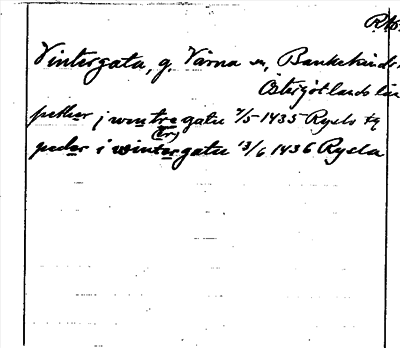 Vintergata, g. Värna sn, Bankekinds
Östergötlands län
petter j wintregatu 2/5 1435 Ryels
(er)
peder i wintergatu 13/6 1436 Ryela